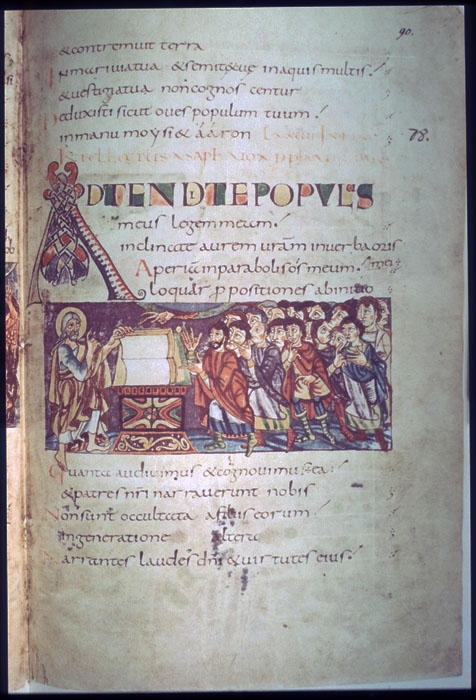 90.
& contremuit terra
In mari via tua & semitę tuę in aquis multis!
& vestigia tua non cognoscentur
Deduxisti sicut oves populum tuum!
in manu moysi & aaron
78.
INTELLECTUS ASAPH
ADTENDITE POPULES
meus legem meam!
inclinate aurem uram in verba oris
Aperiam in parabolis os meum! mei
loquar ppositiones ab initio
Quanta audivimus & cognovimus ea!
& patres nri narraverunt nobis
Non sunt occultata a filiis eorum!
in generatione altera
Narrantes laudes dni & virtutes eius!